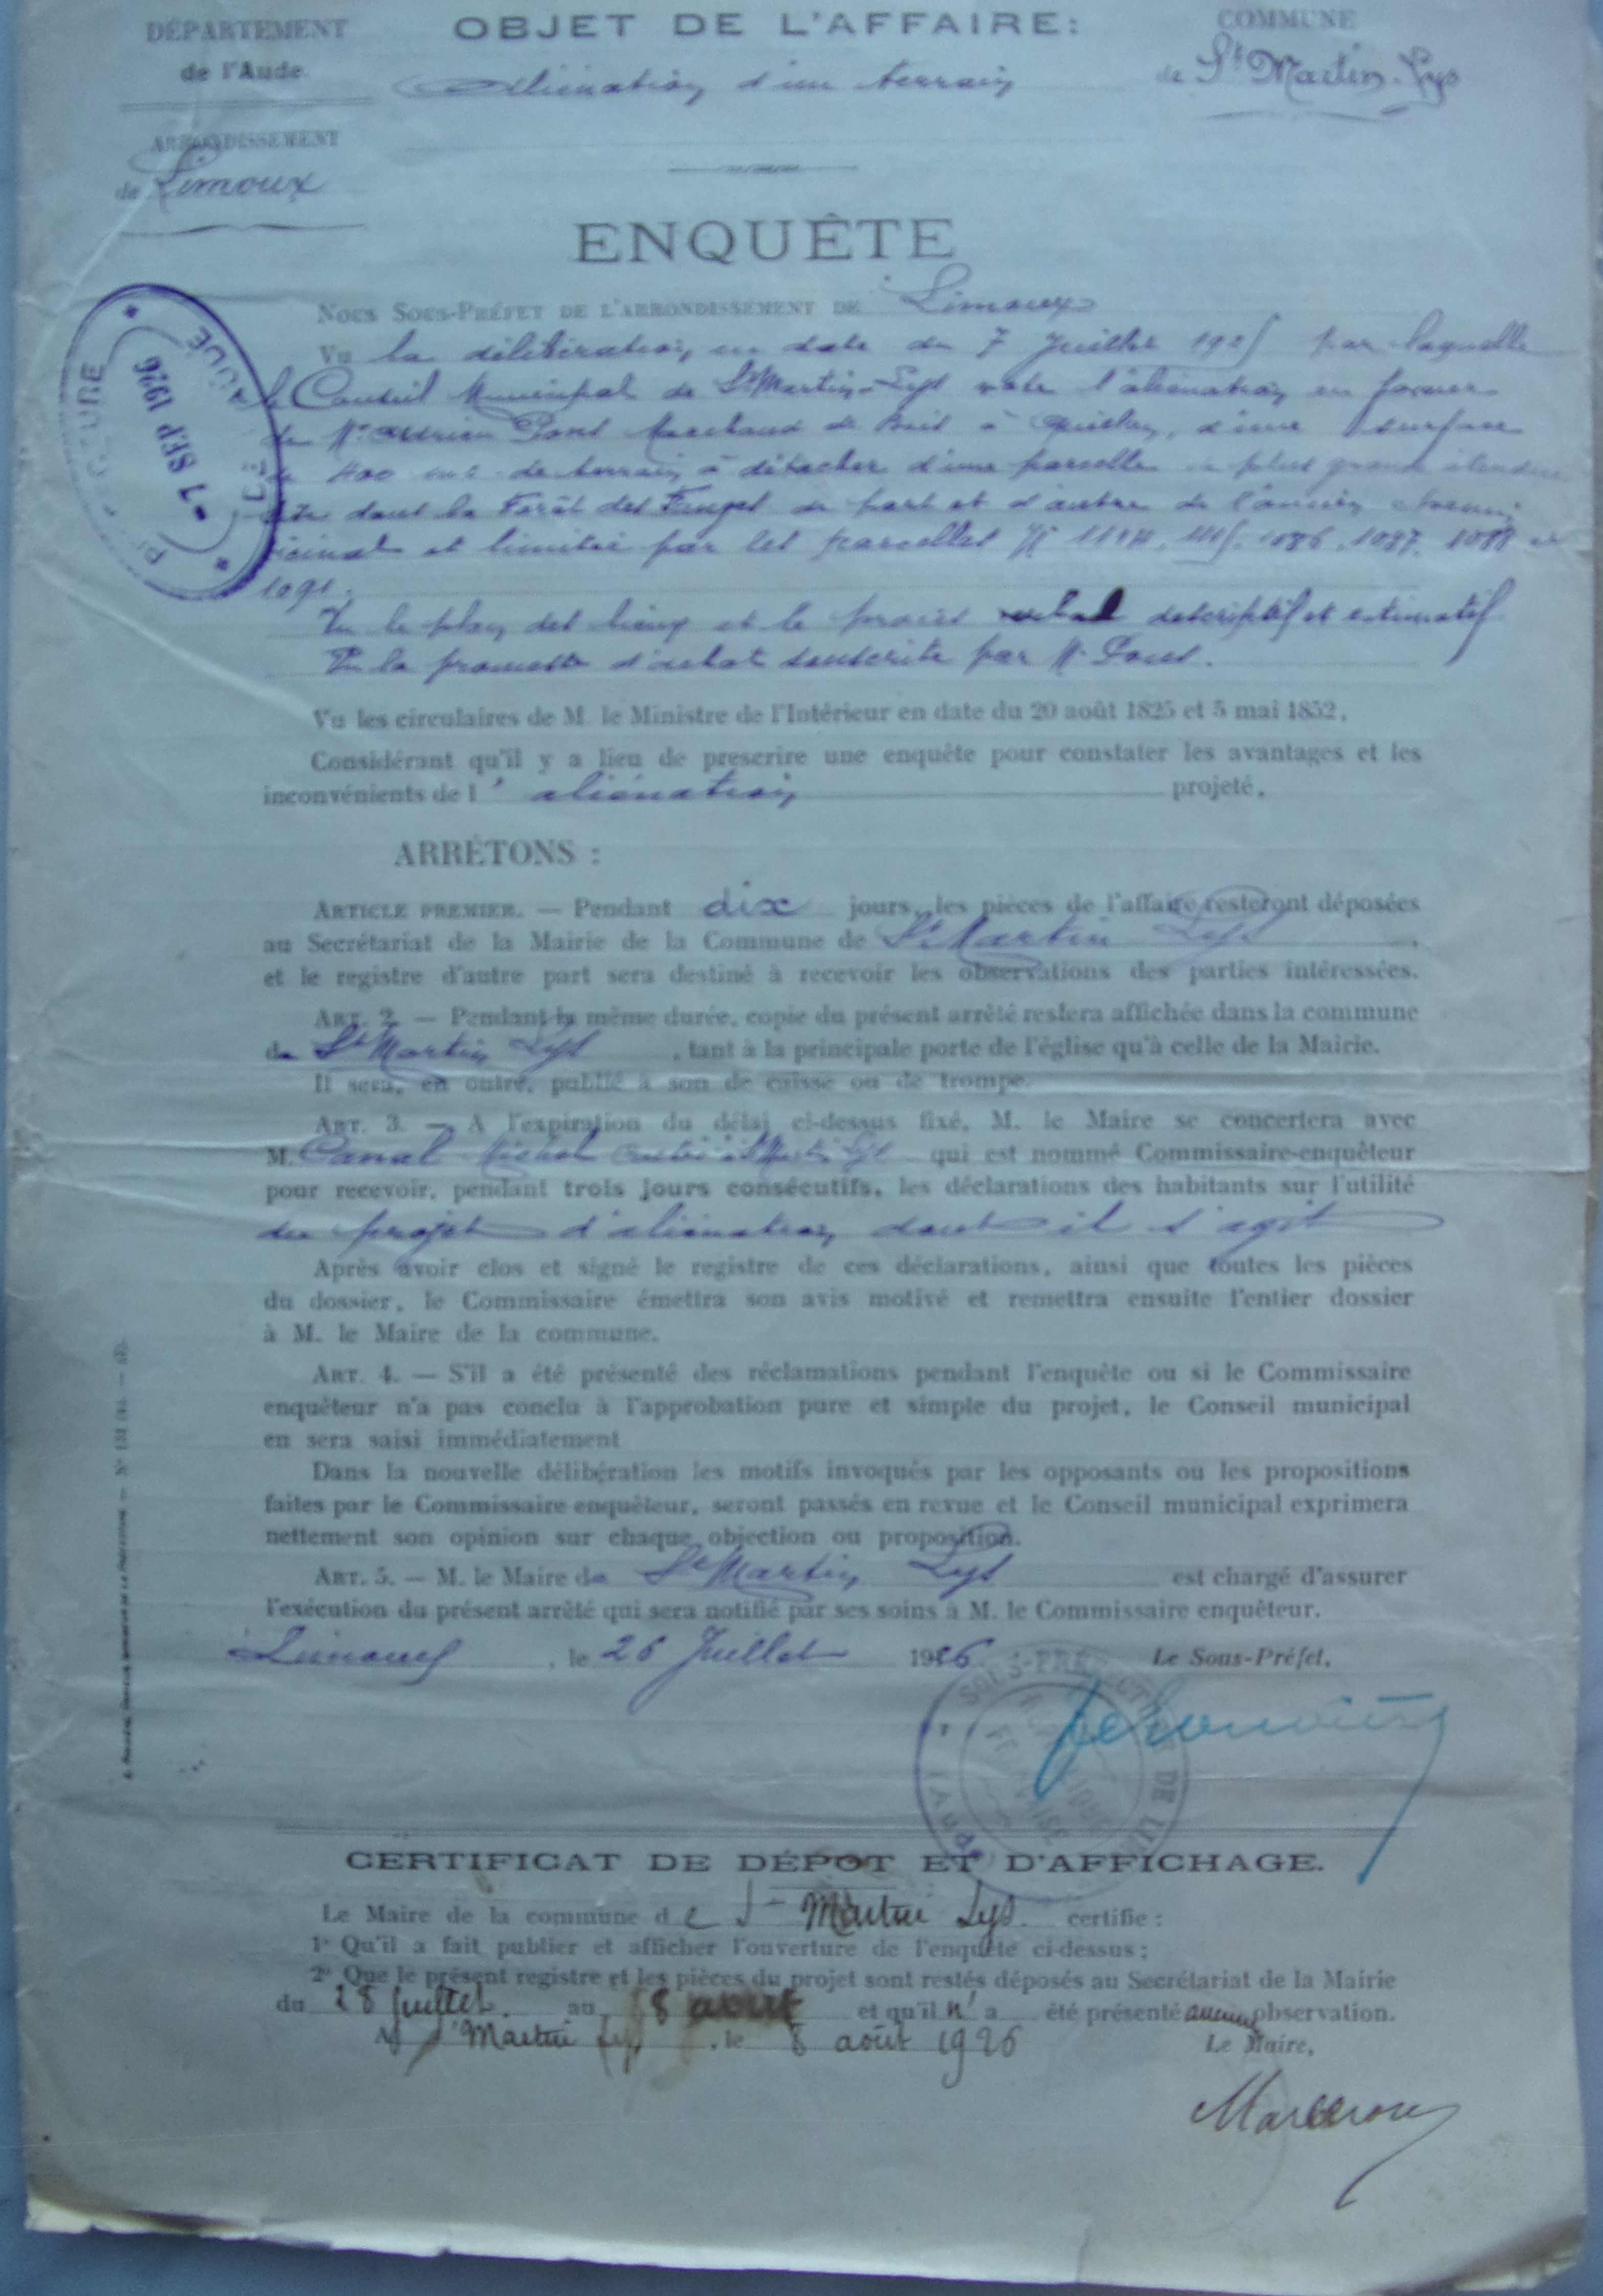 DÉPARTEMENT
de l'Aude.
OBJET DE L'AFFAIRE:
Aliénation d'un terrain
COMMUNE
de St Martin-Lys
ARRONDISSEMENT
de Limoux
ENQUÊTE
Nous Sous-Préfet de l'arrondissement de Limoux
Vu la délibération en date du 7 Juillet 1925 par laquelle
le Conseil Municipal de St Martin-Lys vote l'aliénation en faveur
de Mr Adrien Pont Marchand de Bois à Quillan, d'une surface
de 400 m2 de terrain à détacher d'une parcelle de plus grande étendue
dans la Forêt des Fanges de part et d'autre de l'ancien chemin
vicinal et limitée par les parcelles No 1114, 1115, 1086, 1087, 1088 et
1091.
Vu le plan des lieux et le procès verbal descriptif et estimatif
Vu la promesse d'achat souscrite par M. Pont.
Vu les circulaires de M. le Ministre de l'Intérieur en date du 20 août 1825 et 5 mai 1852,
Considérant qu'il y a lieu de prescrire une enquête pour constater les avantages et les
inconvénients de l'aliénation projeté,
ARRÊTONS :
Article premier. — Pendant dix jours, les pièces de l'affaire resteront déposées
au Secrétariat de la Mairie de la Commune de St Martin Lys,
et le registre d'autre part sera destiné à recevoir les observations des parties intéressées.
Art. 2. — Pendant la même durée, copie du présent arrêté restera affichée dans la commune
de St Martin Lys, tant à la principale porte de l'église qu'à celle de la Mairie.
Il sera, en outre, publié à son de caisse ou de trompe.
Art. 3. — A l'expiration du délai ci-dessus fixé, M. le Maire se concertera avec
M. Canal Michel à St Martin Lys qui est nommé Commissaire-enquêteur
pour recevoir, pendant trois jours consécutifs, les déclarations des habitants sur l'utilité
du projet d'aliénation dont il s'agit
Après avoir clos et signé le registre de ces déclarations, ainsi que toutes les pièces
du dossier, le Commissaire émettra son avis motivé et remettra ensuite l'entier dossier
à M. le Maire de la commune.
Art. 4. — S'il a été présenté des réclamations pendant l'enquête ou si le Commissaire
enquêteur n'a pas conclu à l'approbation pure et simple du projet, le Conseil municipal
en sera saisi immédiatement
Dans la nouvelle délibération les motifs invoqués par les opposants ou les propositions
faites par le Commissaire enquêteur, seront passés en revue et le Conseil municipal exprimera
nettement son opinion sur chaque objection ou proposition.
Art. 5. — M. le Maire de St Martin Lys est chargé d'assurer
l'exécution du présent arrêté qui sera notifié par ses soins à M. le Commissaire enquêteur.
Limoux, le 26 Juillet 1926
Le Sous-Préfet,
CERTIFICAT DE DÉPOT ET D'AFFICHAGE.
Le Maire de la commune de St Martin Lys certifie :
1° Qu'il a fait publier et afficher l'ouverture de l'enquête ci-dessus ;
2° Que le présent registre et les pièces du projet sont restés déposés au Secrétariat de la Mairie
du 28 Juillet au 8 août et qu'il n'a été présenté aucune observation.
A St Martin Lys, le 8 août 1926
Le Maire,
-1 SEP 1926
SOUS-PRÉFECTURE DE LIM
(AUDE)